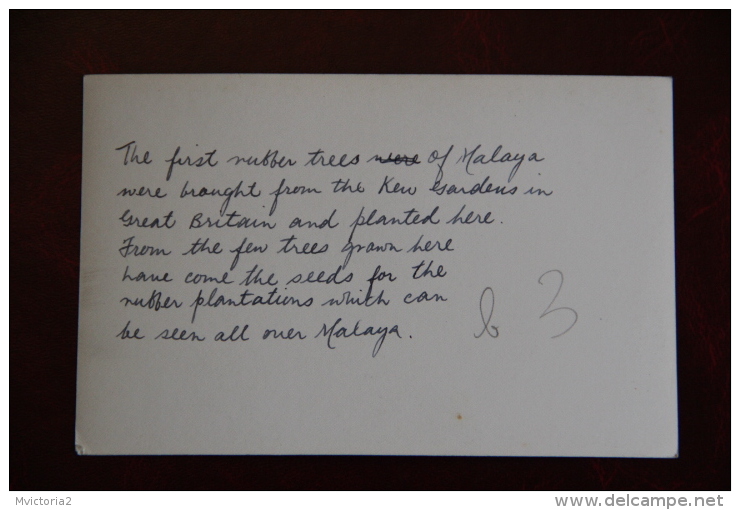 The first rubber trees were of Malaya
were brought from the Kew Gardens in
Great Britain and planted here.
From the few trees grown here
have come the seeds for the
rubber plantations which can
be seen all over Malaya.
b 3
Mvictoria2
www.delcampe.net